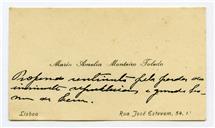 Maria Amelia Monteiro Toledo
Profundo sentimento pela perda do
eminente republicano, e grande ho-
mem de bem.
Lisboa
Rua José Estevam, 54, 1.º